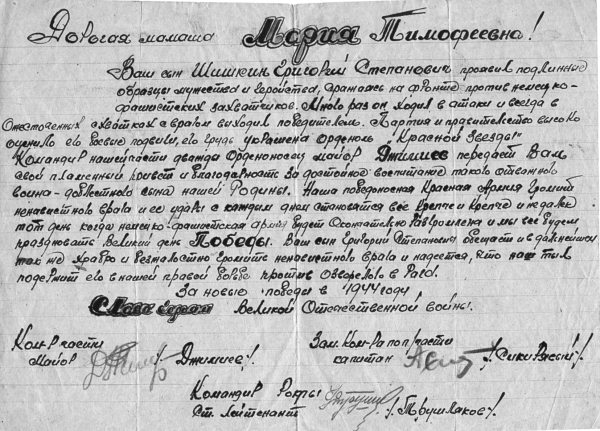 Дорогая мамаша Мария Тимофеевна!
Ваш сын Шишкин Григорий Степанович проявил подлинные
образцы мужества и геройства, сражаясь на фронте против немецко-
фашистских захватчиков. Много раз он ходил в атаки и всегда в
ожесточенных схватках с врагом выходил победителем. Партия и правительство высоко
оценило его боевые подвиги, его грудь украшена орденом "Красной Звезды"
Командир нашей части дважды Орденоносец майор Джимиев передает Вам
свой пламенный привет и благодарность за достойное воспитание такого отважного
воина - доблестного сына нашей Родины. Наша победоносная Красная Армия громит
ненавистного врага и ее удары с каждым днем становятся все крепче и крепче и недалек
тот день когда немецко-фашистская армия будет окончательно разгромлена и мы все будем
праздновать великий день Победы. Ваш сын Григорий Степанович обещает и в дальнейшем
так же храбро и безжалостно громить ненавистного врага и надеется, что наш тыл
поддержит его в нашей правой борьбе против
За новые победы в 1944 году
Слава героям Великой Отечественной войны.
Ком-р части
майор /Джимиев/.
Зам. Ком-ра по п/части
капитан
Командир роты
Ст. лейтенант /Трушляков/.